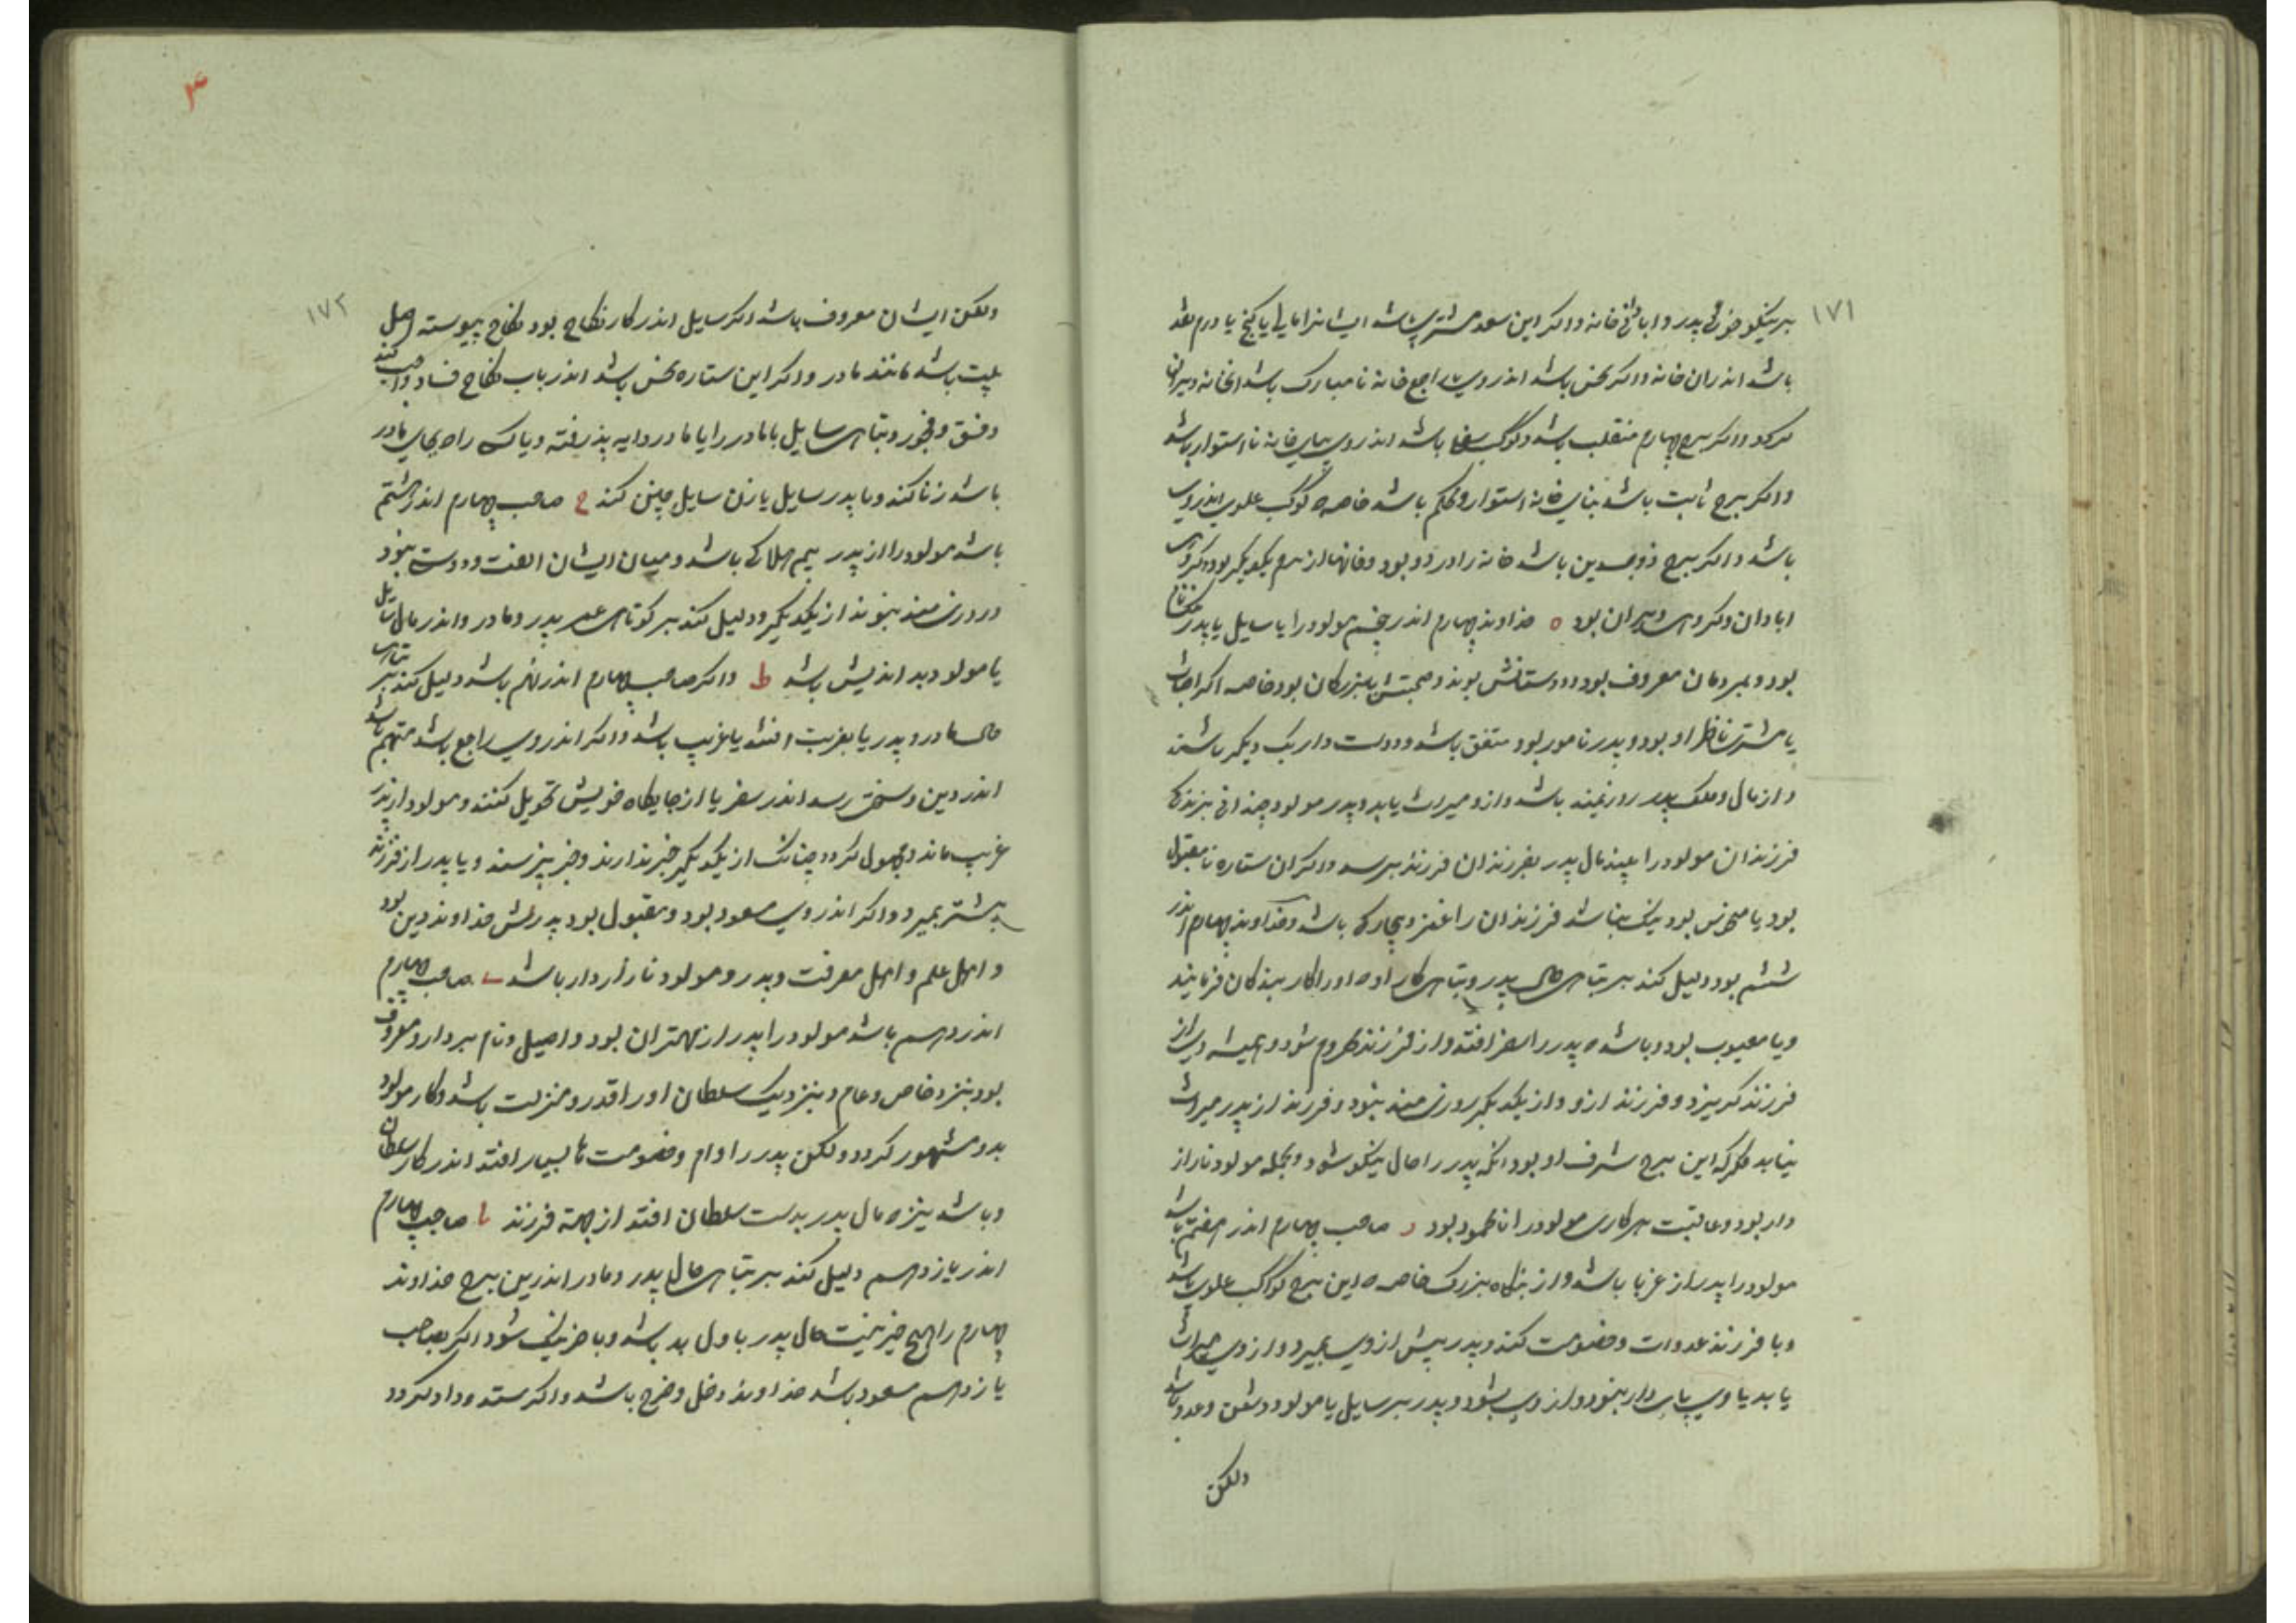 ۱۷۱
بر نیکو خوئی پدر و ابادانی خانه و اکر این سعد مشتری باشد ایشانرا مالی یا کنج یا درم نقد
باشد اندران خانه و اکر نحس باشد اندر وی یا راجع خانه نامبارک باشد انخانه ویران
کردد و اکر برج چهارم منقلب باشد و کوکب سفلی باشد اندر وی بنای خانه نااستوار باشد
و اکر برج ثابت باشد بنای خانه استوار و محکم باشد خاصه که کوکب علوی اندر وی
باشد و اکر برج ذوجسدین باشد خانه را در دو بود و خانها از هم یکدیکر بود و کروهی
ابادان و کروهی ویران بود ه خداوند چهارم اندر پنجم مولود را یا سایل یا پدر
بود و بمردمان معروف بود و دوستانش بوند و صحبتش با بزرکان بود خاصه اکر افتاب
یا مشتری ناظر او بود و پدر نامور بود متفق باشد و دولت دار یک دیکر باشند
و از مال و ملک پدر روزیمند باشد و ازو میراث یابد و پدر مولود چندانی بزید که
فرزندان مولود را بیند مال پدر بفرزندان فرزند برسد و اکر ان ستاره نامقبول
بود یا منحوس بود نیک نباشد فرزندان را عجز و بیچارکی باشد و خداوند چهارم اندر
ششم بود دلیل کند بر تباهی حال پدر و تباهی کار او و او را کار بندکان فرمایند
و یا معیوب بود و باشد که پدر را سفر افتد و از فرزند محروم شود و همیشه وی از
فرزند کریزد و فرزند ازو و از یکدیکر روزی مند نبود و فرزند از پدر میراث
نیابد مکر که این برج شرف او بود انکه پدر را حال نیکو شود و بجمله مولود نازاز
دار بود و عاقبت هر کاری مولود را نامحمود بود ز صاحب چهارم اندر هفتم باشد
مولود را پدر از غربا باشد و از بنکاه بزرک خاصه که این برج کوکب علوی باشد
و با فرزند عداوت و خصومت کند و پدر پیش از وی بمیرد و از وی میراث
یابد یا وی پای دار نبود و از وی بشود و پدر بر سایل یا مولود و شفق وعدو باشد
ولکن
۱۷۲
ولکن ایشان معروف باشد اکر سایل اندر کار نکاح بود نکاح پیوسته اهل
بیت باشد مانند مادر و اکر این ستاره نحس باشد اندر باب نکاح فساد واجب کند
و فسق و فجور و تباهی سایل با مادر را یا مادر دایه پذیرفته و یا کسی راه بجای مادر
باشد زنا کند و یا پدر سایل با زن سایل چنین کند ح صاحب چهارم اندر هشتم
باشد مولود را از پدر بیم هلاکی باشد و میان ایشان الفت و دوستی نبود
و روزی مند نبوند از یکدیکر و دلیل کند بر کوتاهی عمر پدر و مادر و اندر مال سایل
یا مولود بد اندیش باشد ط و اکر صاحب چهارم اندر نهم باشد دلیل کند بر تباهی
حال مادر و پدر یا بغربت افتد یا غریب باشد و اکر اندر وی راجع باشد متهم باشد
اندر دین و سختی رسد اندر سفر یا از جایکاه خویش تحویل کنند و مولود از پدر
غریب ماند و مجهول کردد چنانک از یکدیکر خبر ندارند و خبر نپرسند و یا پدر از فرزند
پیشتر بمیرد و اکر اندر وی مسعود بود و مقبول بود پدرش خداوند دین بود
و اهل علم و اهل معرفت و پدر و مولود نازاردار باشد ی صاحب چهارم
اندر دهم باشد مولود را پدر از مهتران بود و اصیل و نام بردار و معروف
بود بنزد خاص و عام و بنزدیک سلطان او را قدر و منزلت باشد و کار مولود
بدو مشهور کردد ولکن پدر را وام و خصومت ها بسیار افتد اندر کار سلطان
و باشد نیز که مال پدر بدست سلطان افتد از بهة فرزند یا صاحب چهارم
اندر یازدهم دلیل کند بر تباهی حال پدر و مادر اندرین برج خداوند
چهارم را هیچ خیر نیست حال پدر باول بد باشد و باخر نیک شود اکر صاحب
یازدهم مسعود باشد خداوند دخل و خرج باشد و اکر ستد و داد کردد